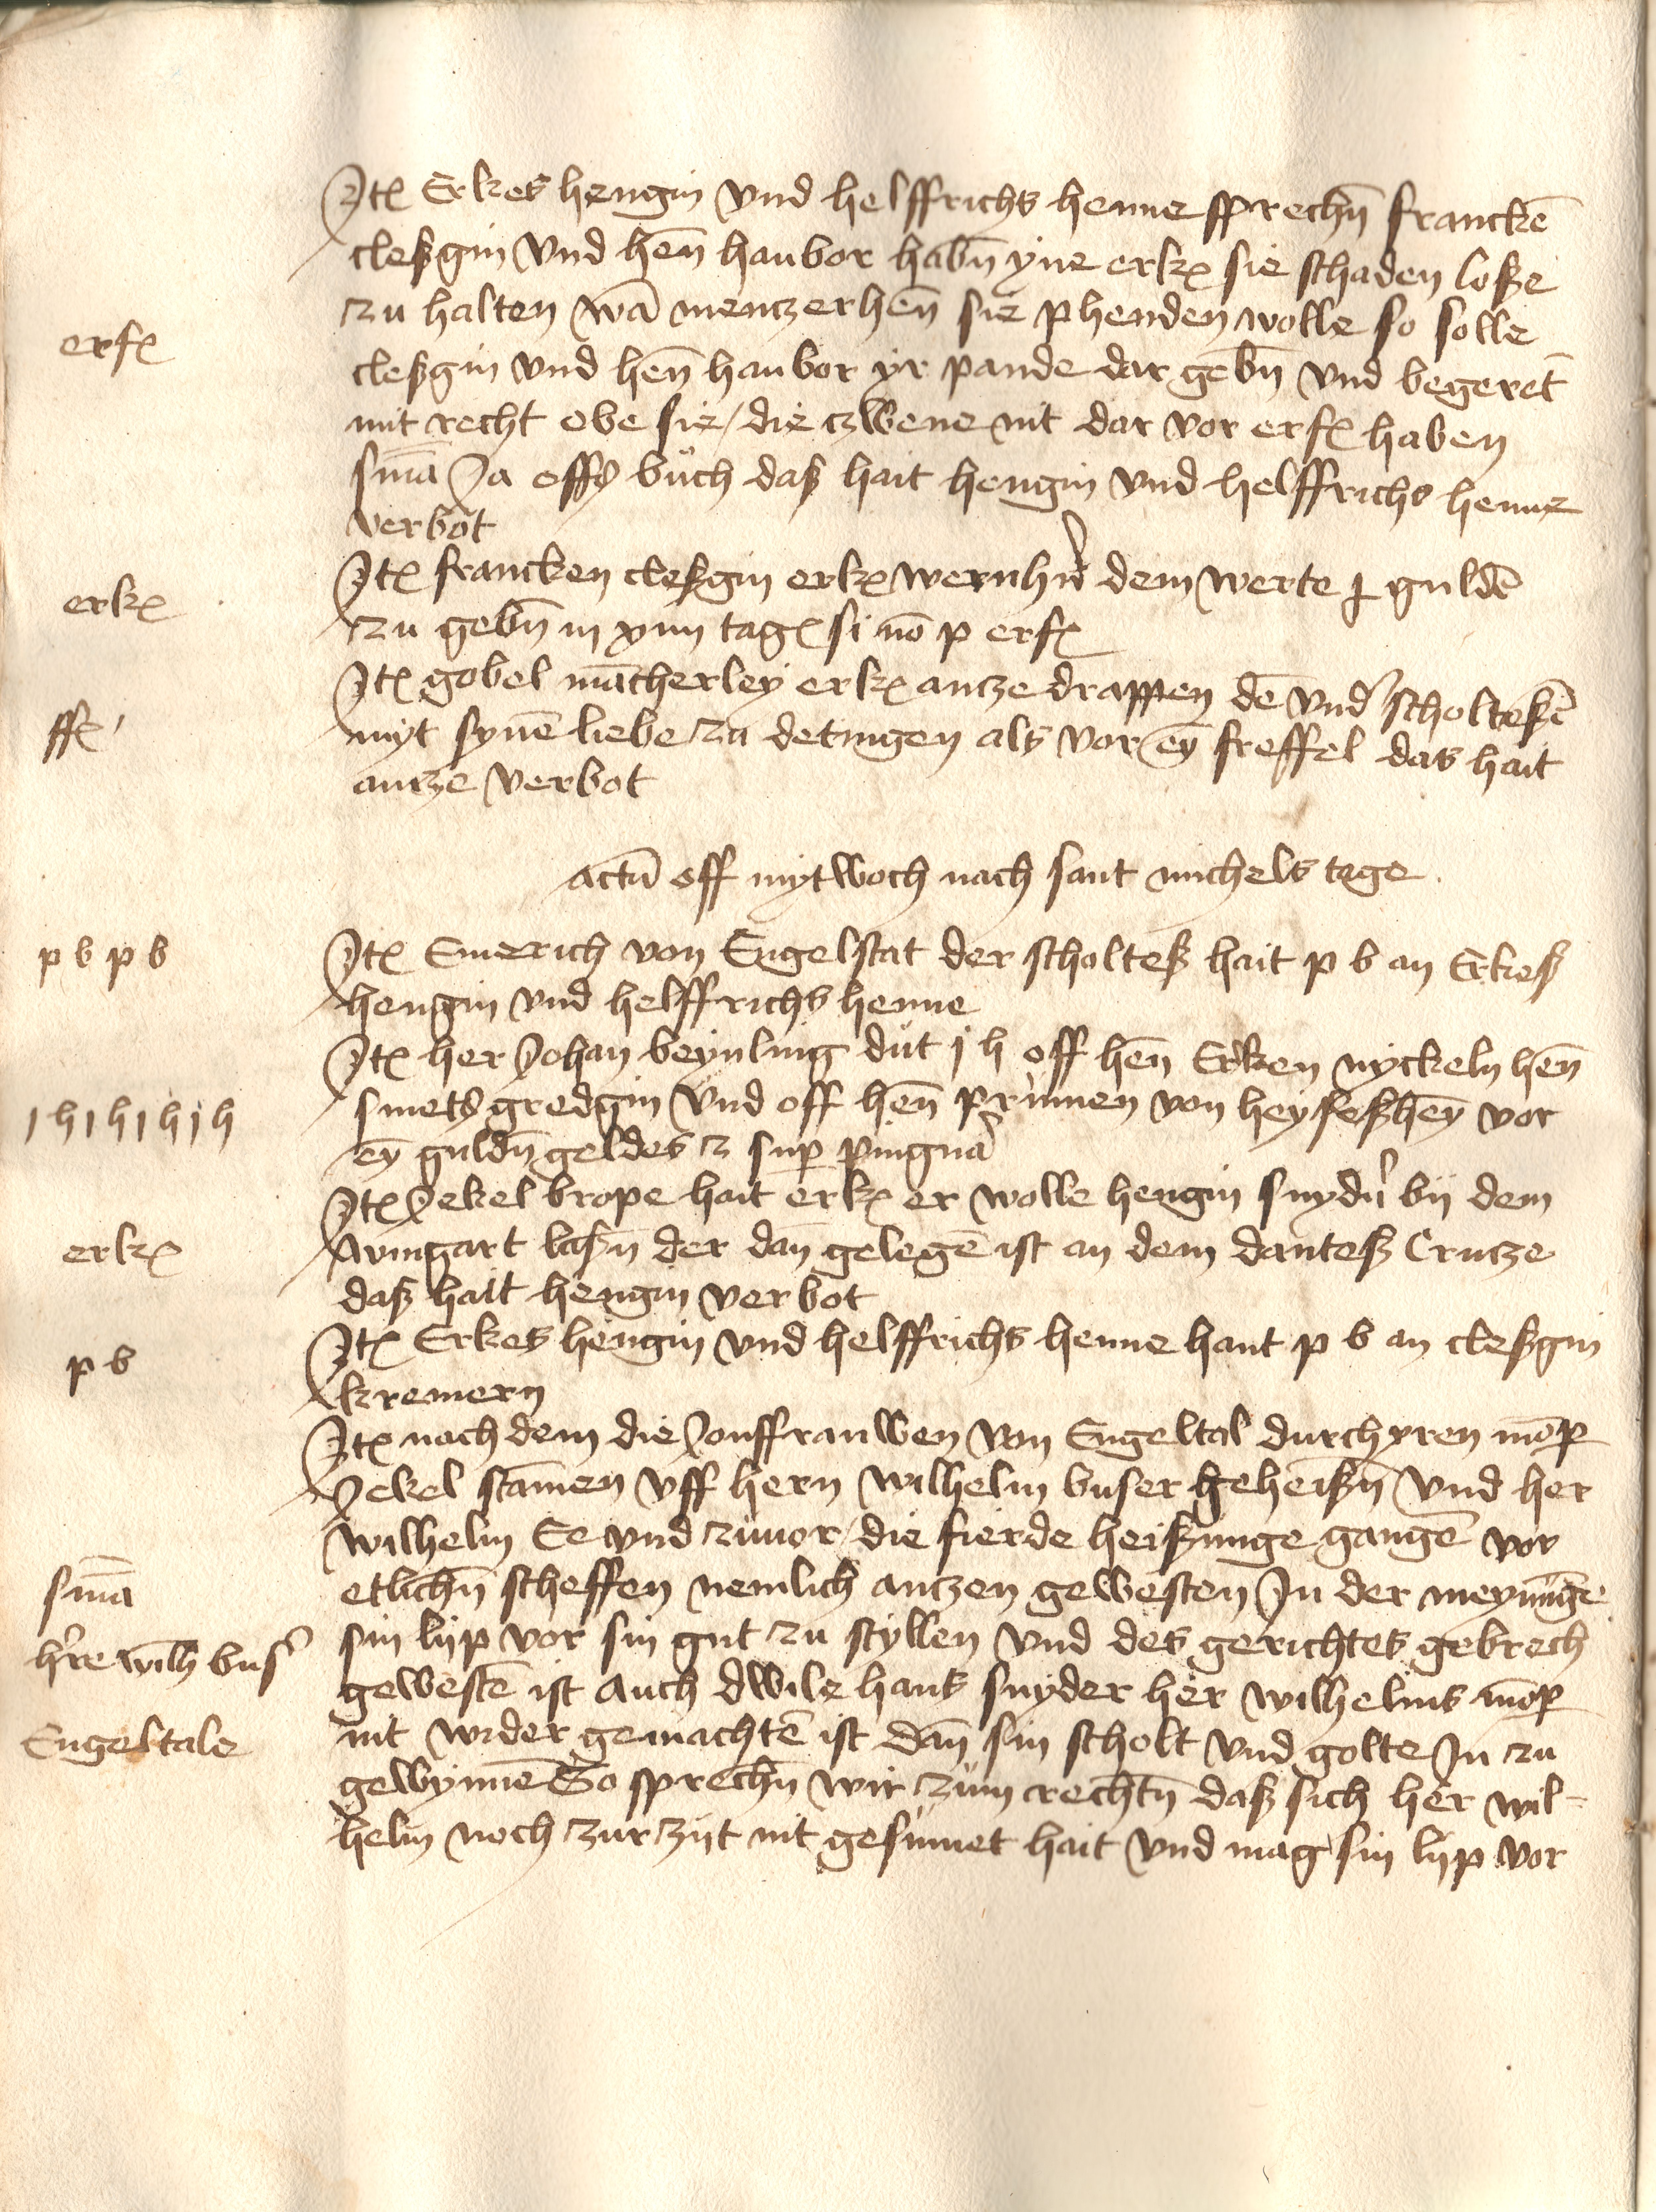 Jtꝫ Erkes hengin vnd helffrichs henne sprechn̄ franckē
cleßgin vnd hēn haubor habn̄ yne erkꝫ sie schaden loße
zu halten wā mentzerhēn sie phenden wolle so solle
erfꝫ
cleßgin vnd hēn haubor yr pande dar gebn̄ vnd begeret̄
mit recht obe sie / die czwene nit dar vor erfꝫ haben
sm̄a Ja offs buch daß hait hengin vnd helffrichs henne
verbot
Jtꝫ francken cleßgin erkꝫ wernhern̄ dem werte guldē
erkꝫ
zu gebn̄ in xiiij tagꝫ si nō p erfꝫ
Jtꝫ gobel mācherley erkꝫ antze drappen dē vnd' scholteßē
ffꝫ'
myt synē liebe zu detingen als vor eȳ freffel das hait
antze verbot
actū off mytwoch nach sant michels tage
p b p b
Jtꝫ Emerich von Engelstat der scholteß hait p b an Erkeß
hengin vnd helffrichs henne
Jtꝫ her Johan beynling dut j h off hēn Erken nyckeln hēn
j h j h j h j h
smets gredgin vnd off hēn prūmen von heyseßheȳ vor
eȳ guldn̄ geldes z sup pingua'
Jtꝫ Jekel brope hait erkꝫ er wolle hengin snydn̄ bij dem
erkꝫ
wingart laßn̄ der dan̄ gelegē ist an dem danteß Crutze
daß hait hengin verbot
Jtꝫ Erkes hengin vnd helffrichs henne hant p b an cleßgin
p b
kremern
Jtꝫ nach dem die Jonffrauwen von Engeltal durch yren mōp
Jekel stāmen vff hern wilhelm buser geheißn̄ vnd her
wilhelm Ee vnd zuuor / die fierde heißunge gangē vor
sm̄a
etlichn̄ scheffen nemlich antzen gewesten Jn der meynūge
h're wilh̄ bus'
sin lijp vor sin gut zu styllen vnd des gerichtes gebrech
gewestē ist auch dwile hans snyder her wilhelms mōp
Engeltale
nit wider gemachtē ist dan̄ sin scholt vnd golte Jn zu
gewynnē So sprechn̄ wir zum rechtn̄ daß sich her wil-
helm noch zur zijt nit gesumet hait vnd mag sin lijp vor